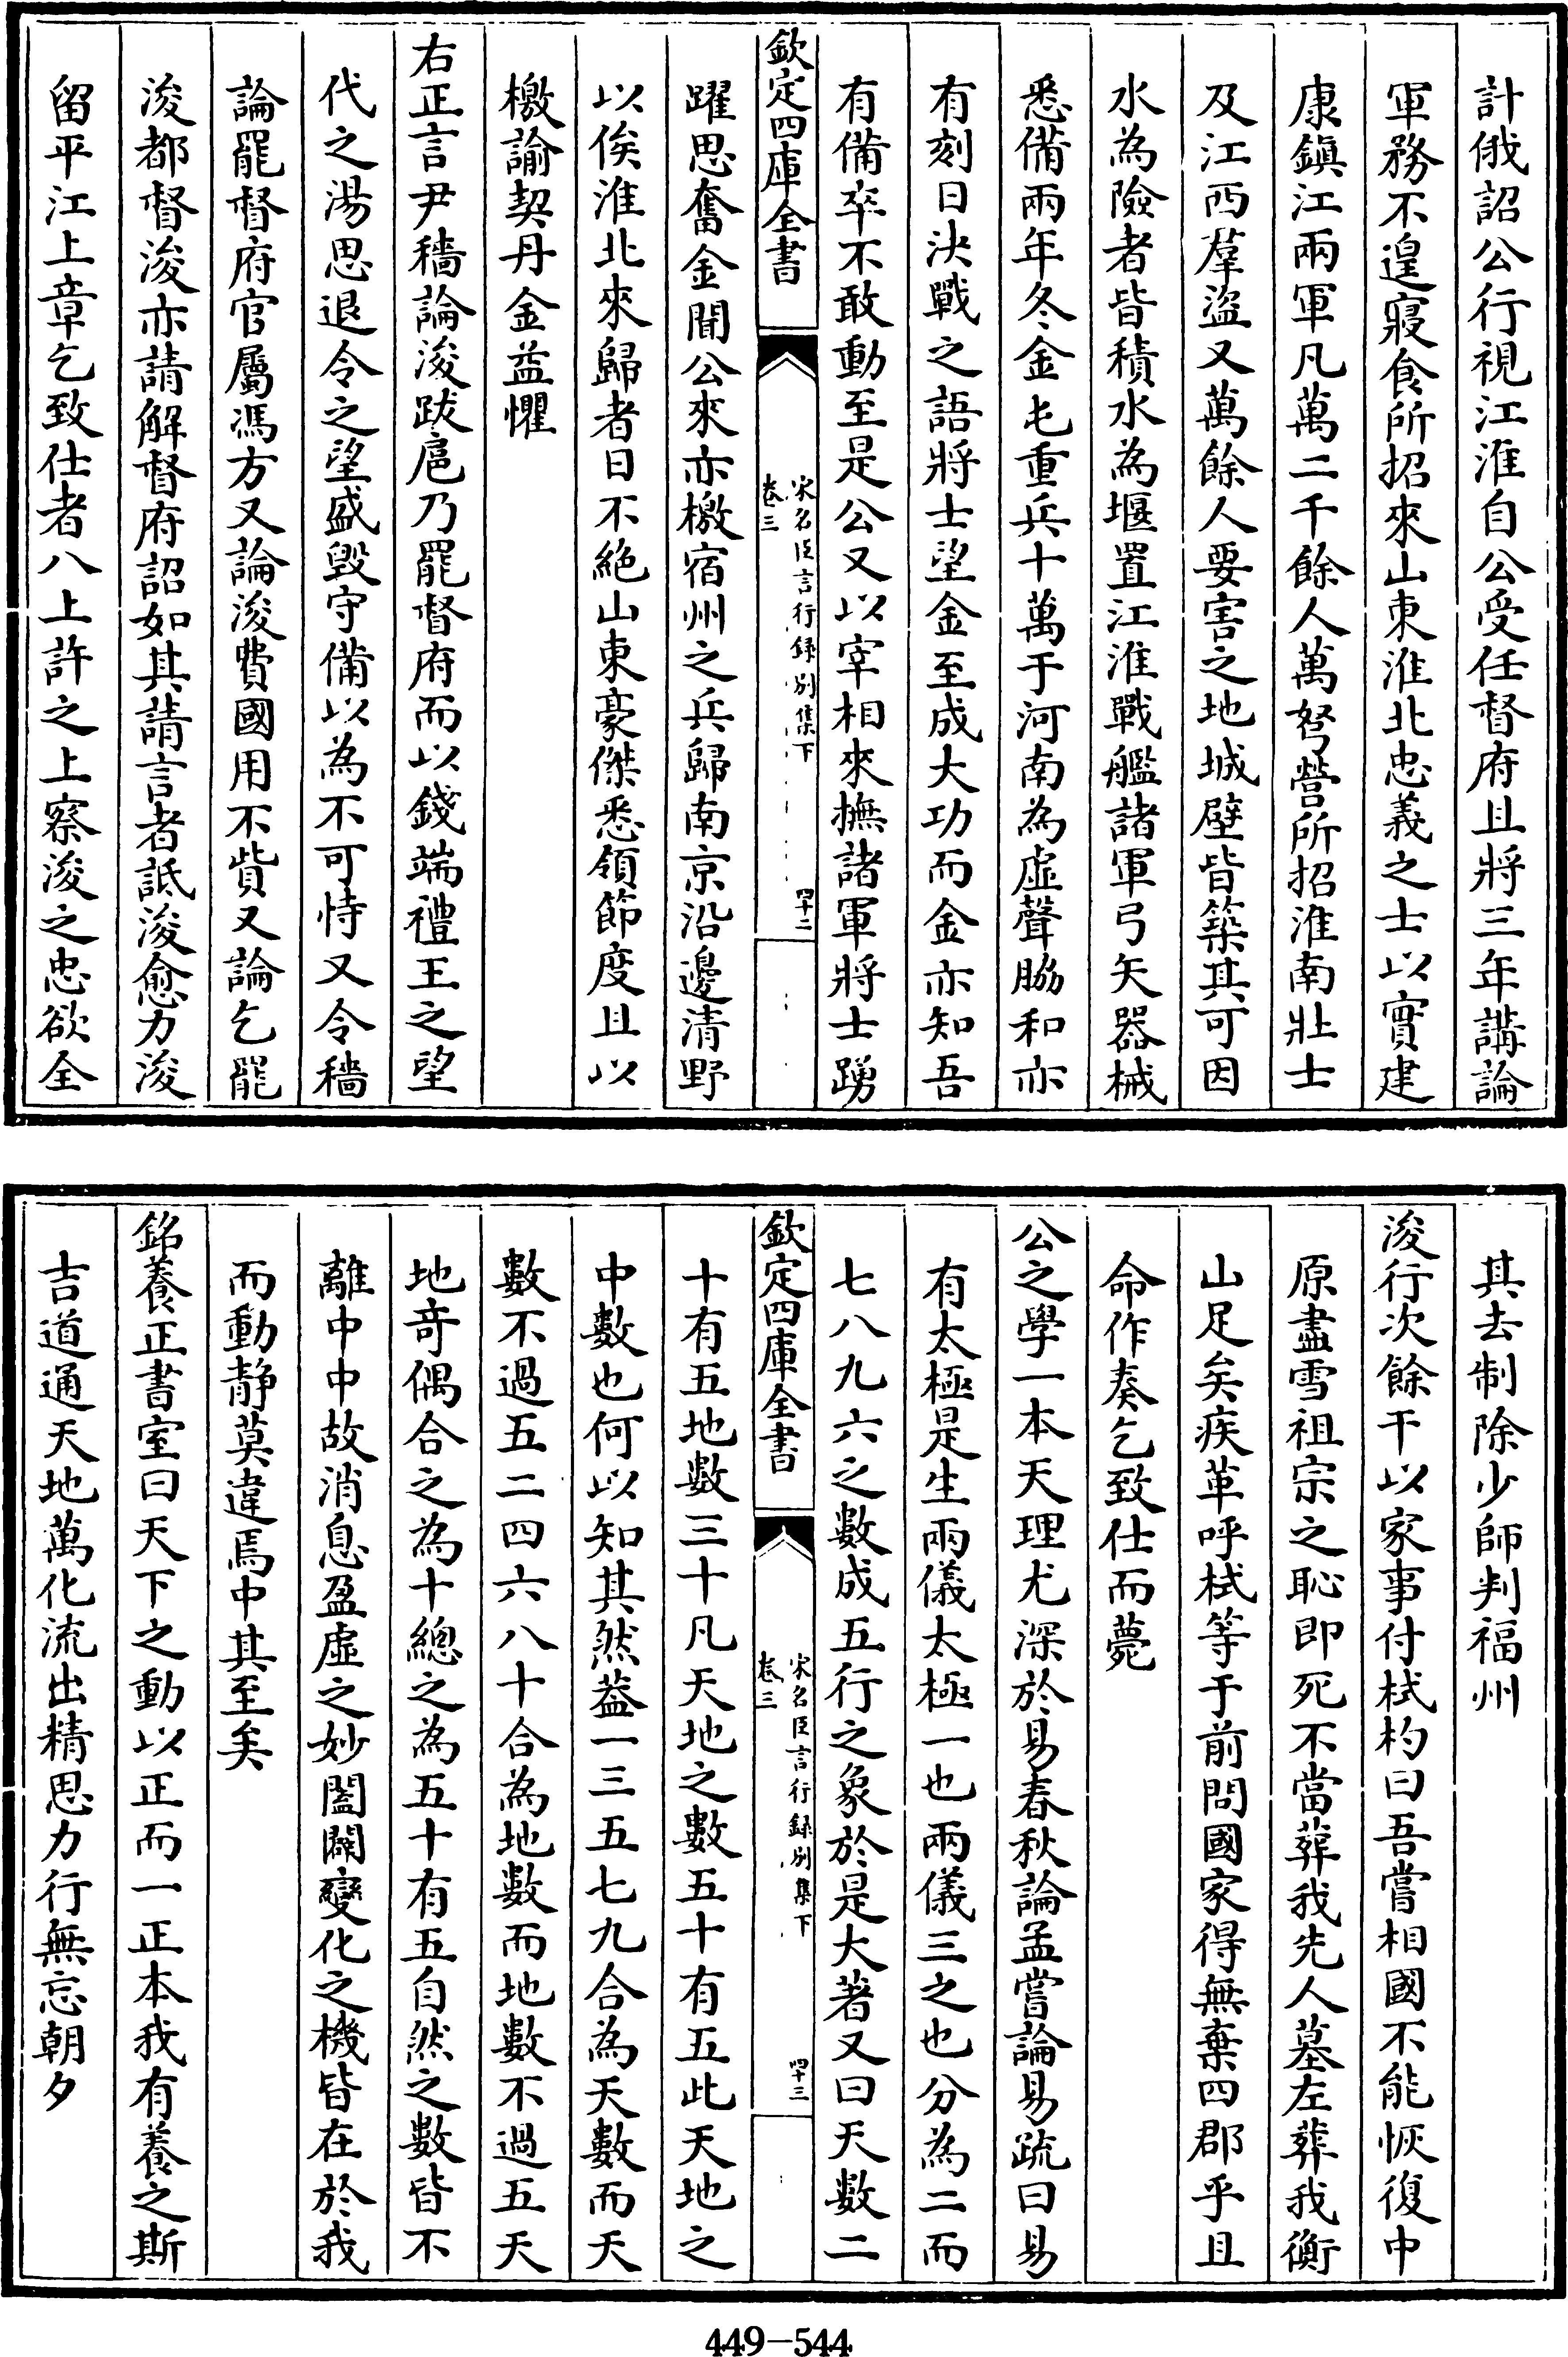 計俄詔公行視江淮自公受任督府且將三年講論
軍務不遑寢食所招來山東淮北忠義之士以實建
康鎮江兩軍凡萬二千餘人萬弩營所招淮南壯士
及江西羣盜又萬餘人要害之地城壁皆築其可因
水為險者皆積水為堰置江淮戰艦諸軍弓矢器械
悉備兩年冬金屯重兵十萬于河南為虛聲脇和亦
有刻日決戰之語將士望金至成大功而金亦知吾
有備卒不敢動至是公又以宰相來撫諸軍將士踴
欽定四庫全書
宋名臣言行録別集下
卷三
四十二
躍思奮金聞公來亦檄宿州之兵歸南京沿邊清野
以俟淮北來歸者日不絶山東豪傑悉領節度且以
檄諭契丹金益懼
右正言尹穡論浚跋扈乃罷督府而以錢端禮王之望
代之湯思退令之望盛毁守備以為不可恃又令穡
論罷督府官屬馮方又論浚費國用不貲又論乞罷
浚都督浚亦請解督府詔如其請言者詆浚愈力浚
留平江上章乞致仕者八上許之上察浚之忠欲全
其去制除少師判福州
浚行次餘干以家事付栻杓曰吾嘗相國不能恢復中
原盡雪祖宗之恥即死不當葬我先人墓左葬我衡
山足矣疾革呼栻等于前問國家得無棄四郡乎且
命作奏乞致仕而薨
公之學一本天理尤深於易春秋論孟嘗論易疏曰易
有太極是生兩儀太極一也兩儀三之也分為二而
七八九六之數成五行之象於是大著又曰天數二
欽定四庫全書
宋名臣言行録別集下
卷三
四十三
十有五地數三十凡天地之數五十有五此天地之
中數也何以知其然葢一三五七九合為天數而天
數不過五二四六八十合為地數而地數不過五天
地竒偶合之為十總之為五十有五自然之數皆不
離中中故消息盈虛之妙闔闢變化之機皆在於我
而動静莫違焉中其至矣
銘養正書室曰天下之動以正而一正本我有養之斯
吉道通天地萬化流出精思力行無忘朝夕
449-544